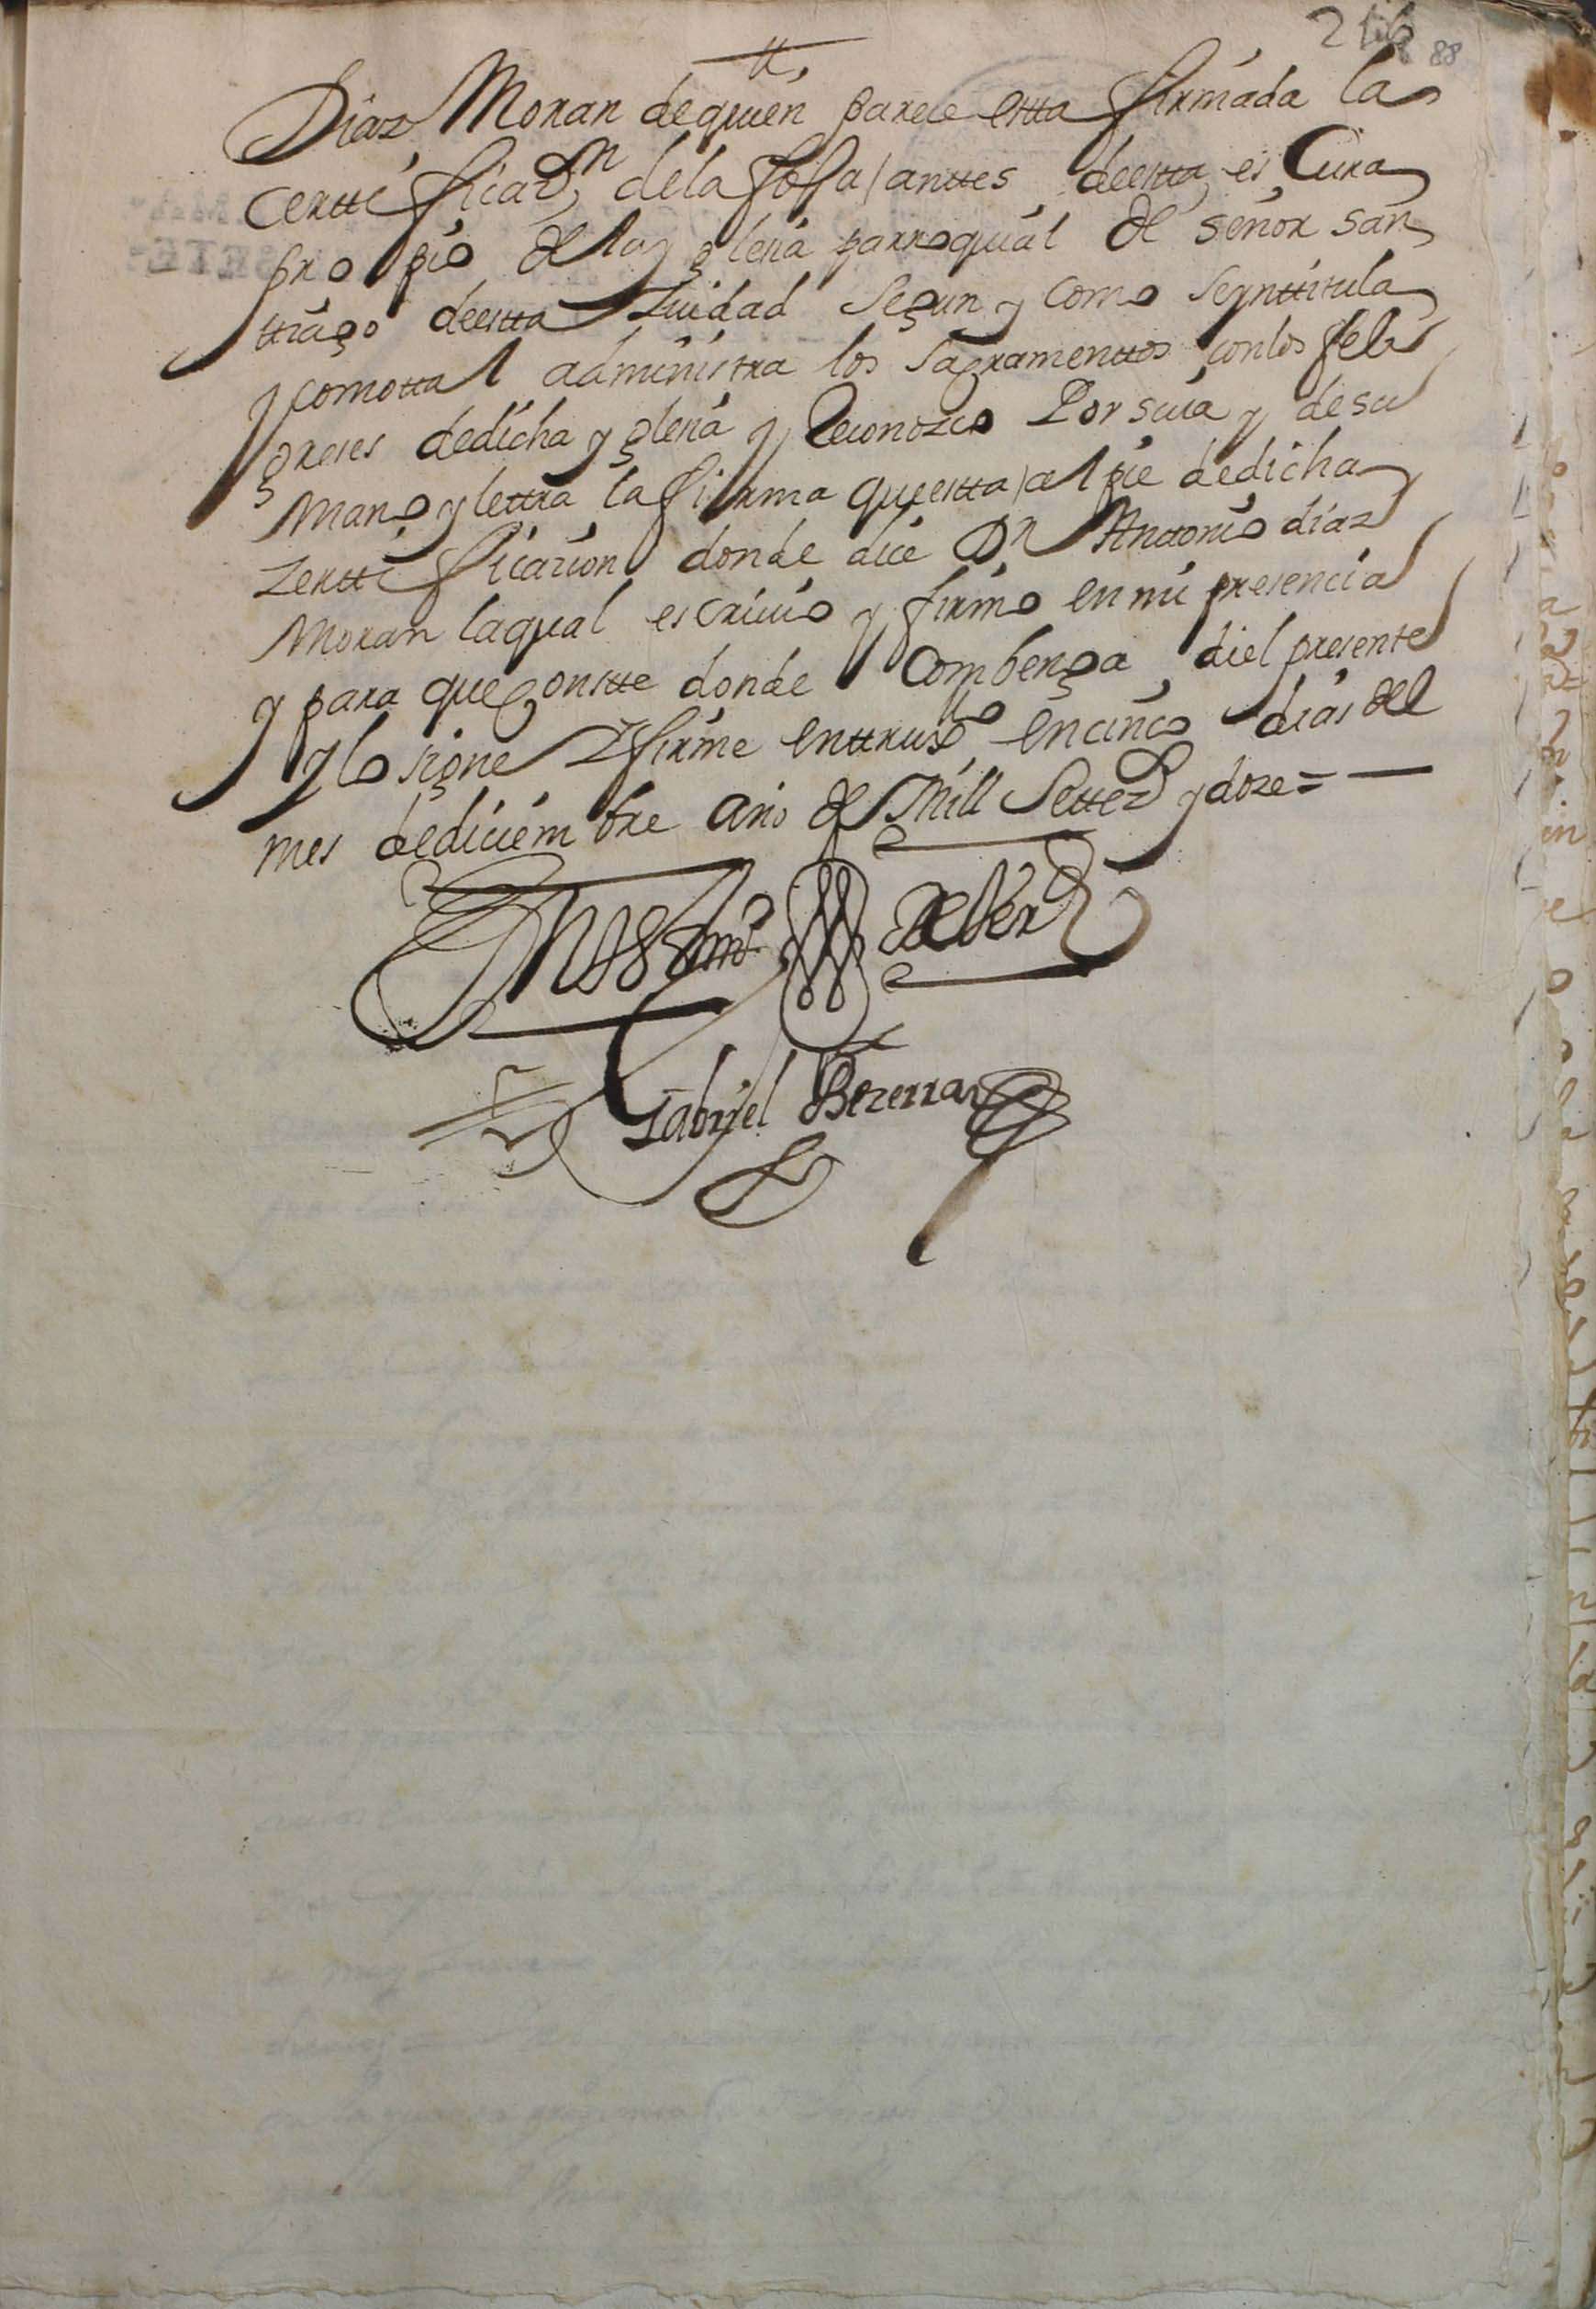 88
Diaz Moran dequien pareze estta firmada la
Certtificaⁿ dela foxa anttes deestta es Cura
propio de la yglesia parroquial de señor san
ttiago deestta Ziudad Segun y Como seynttitula
y comotta l administra los Sagramenttos conlos feli
greses dedicha yglesia y Reconozco Por suia y desu
mano y lettra la firma queestta al pie dedicha
Zerttificazion donde dice Dⁿ Anttonio diaz
Moran laqual escriuio y firmo en mi presencia
y para que Constte donde Combenga di el presente
y lo signe y firme enttruxᵒ en cinco dias del
mes dediciembre año de Mill Settezᵒ y doze = —
de Ver
Gabriel Bezerra